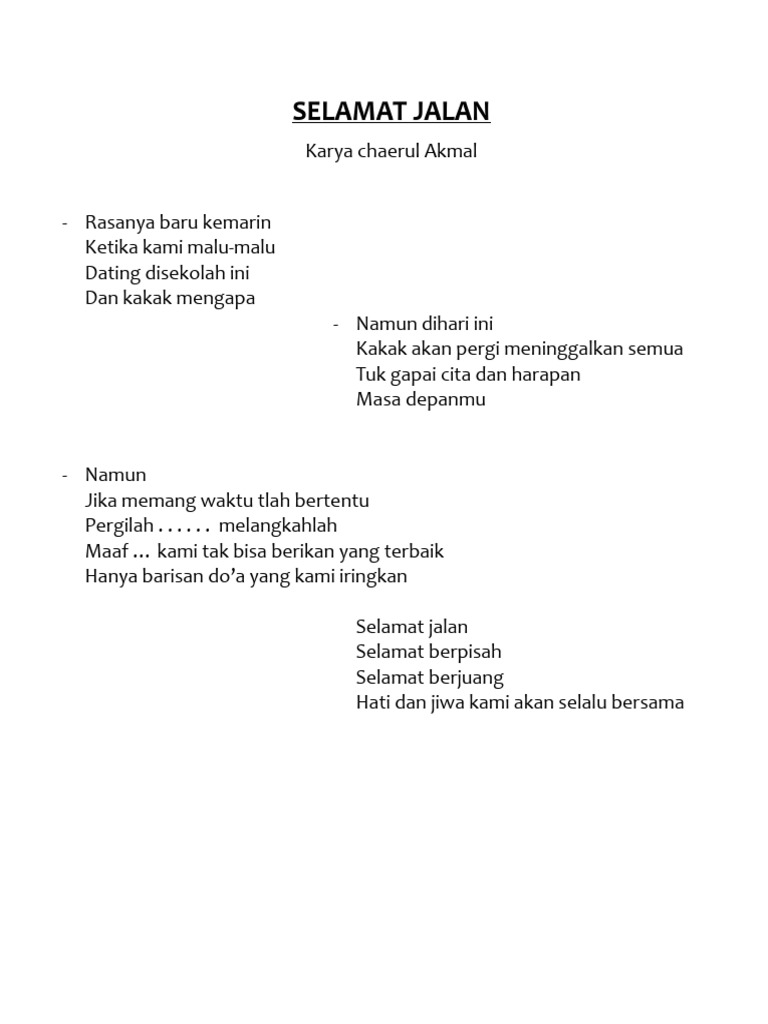 SELAMAT JALAN
Karya chaerul Akmal
- Rasanya baru kemarin
Ketika kami malu-malu
Dating disekolah ini
Dan kakak mengapa
- Namun dihari ini
Kakak akan pergi meninggalkan semua
Tuk gapai cita dan harapan
Masa depanmu
- Namun
Jika memang waktu tlah bertentu
Pergilah . . . . . . melangkahlah
Maaf ... kami tak bisa berikan yang terbaik
Hanya barisan do’a yang kami iringkan
Selamat jalan
Selamat berpisah
Selamat berjuang
Hati dan jiwa kami akan selalu bersama